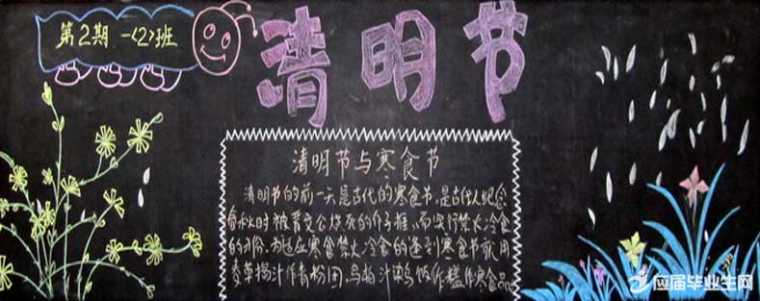 第2期 一<2>班
清明节
清明节与寒食节
清明节的前一天是古代的寒食节,是古代人纪念
春秋时被晋文公烧死的介子推,而实行禁火冷食
的习俗,为适应寒食禁火冷食的 寒食节就用
麦草捣汁作青粉团,乌 汁染乌饭作糕作寒食品
应届毕业生网